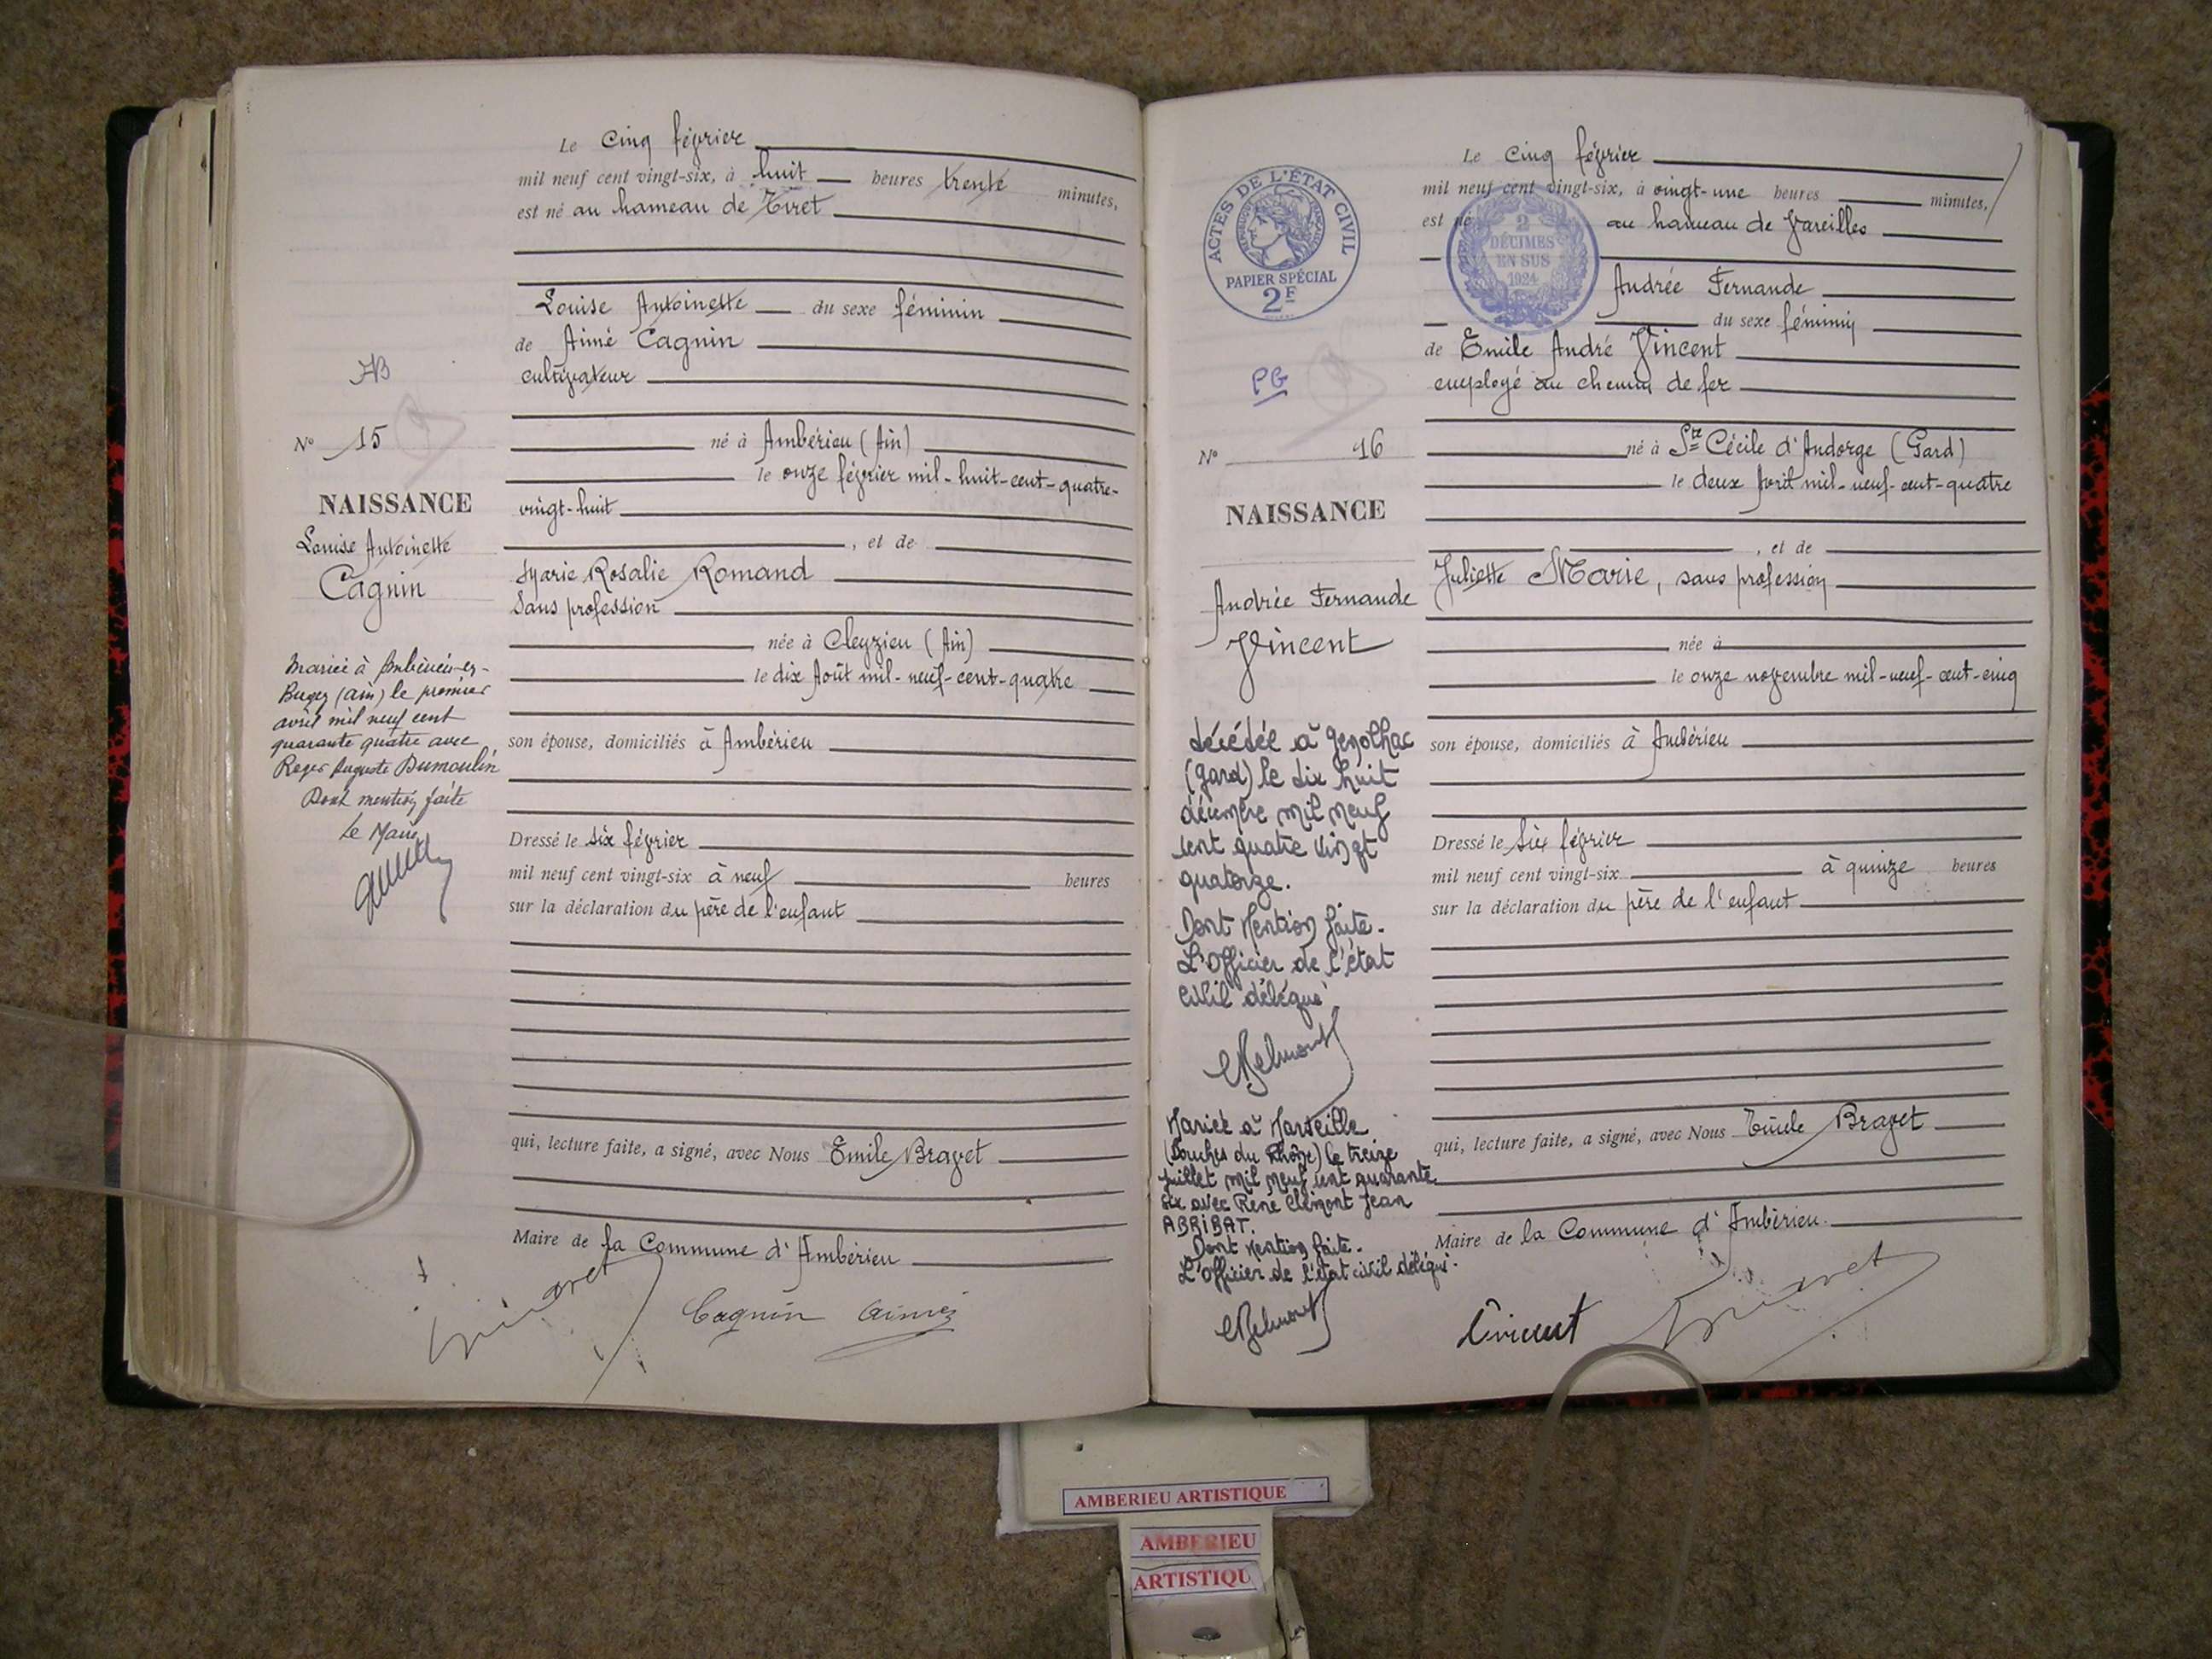 Le Cinq février
mil neuf cent vingt-six, à huit heures trente minutes,
est né au hameau de Tiret
Louise Antoinette du sexe féminin
de Aimé Cagnin
cultivateur
né à Ambérieu (Ain)
le onze février mil-huit-cent-quatre-
vingt-huit
, et de
Marie Rosalie Romand
Sans profession
née à Cleyzieu (Ain)
le dix Août mil-neuf-cent-quatre
son épouse, domiciliés à Ambérieu
Dressé le six février
mil neuf cent vingt-six à neuf heures
sur la déclaration du père de l'enfant
qui, lecture faite, a signé, avec Nous Emile Bravet
Maire de la Commune d'Ambérieu
Cagnin Aimé
N° 15
NAISSANCE
Louise Antoinette
Cagnin
Mariée à Ambérieu-en-
Bugey (Ain) le premier
avril mil neuf cent
quarante quatre avec
Roger Auguste Dumoulin
Dont mention faite
Le Maire
ACTES DE L'ÉTAT CIVIL
RÉPUBLIQUE FRANÇAISE
PAPIER SPÉCIAL
2F
2
DÉCIMES
EN SUS
1924
PG
N° 16
NAISSANCE
Andrée Fernande
Vincent
décédée à Genolhac
(Gard) le dix huit
décembre mil neuf
cent quatre vingt
quatorze.
Dont Mention faite.
L'Officier de l'état
civil délégué
Mariée à Marseille
(Bouches du Rhône) le treize
juillet mil neuf cent quarante
six avec René Clément Jean
ABRIBAT.
Dont Mention faite.
L'Officier de l'état civil délégué.
Le Cinq février
mil neuf cent vingt-six, à vingt-une heures minutes,
est né au hameau de Vareilles
Andrée Fernande
du sexe féminin
de Emile André Vincent
employé au chemin de fer
né à Ste Cécile d'Andorge (Gard)
le deux Avril mil-neuf-cent-quatre
, et de
Juliette Marie, sans profession
née à
le onze novembre mil-neuf-cent-cinq
son épouse, domiciliés à Ambérieu
Dressé le Six février
mil neuf cent vingt-six à quinze heures
sur la déclaration du père de l'enfant
qui, lecture faite, a signé, avec Nous Emile Bravet
Maire de la Commune d'Ambérieu.
Vincent
AMBERIEU ARTISTIQUE
AMBERIEU
ARTISTIQU